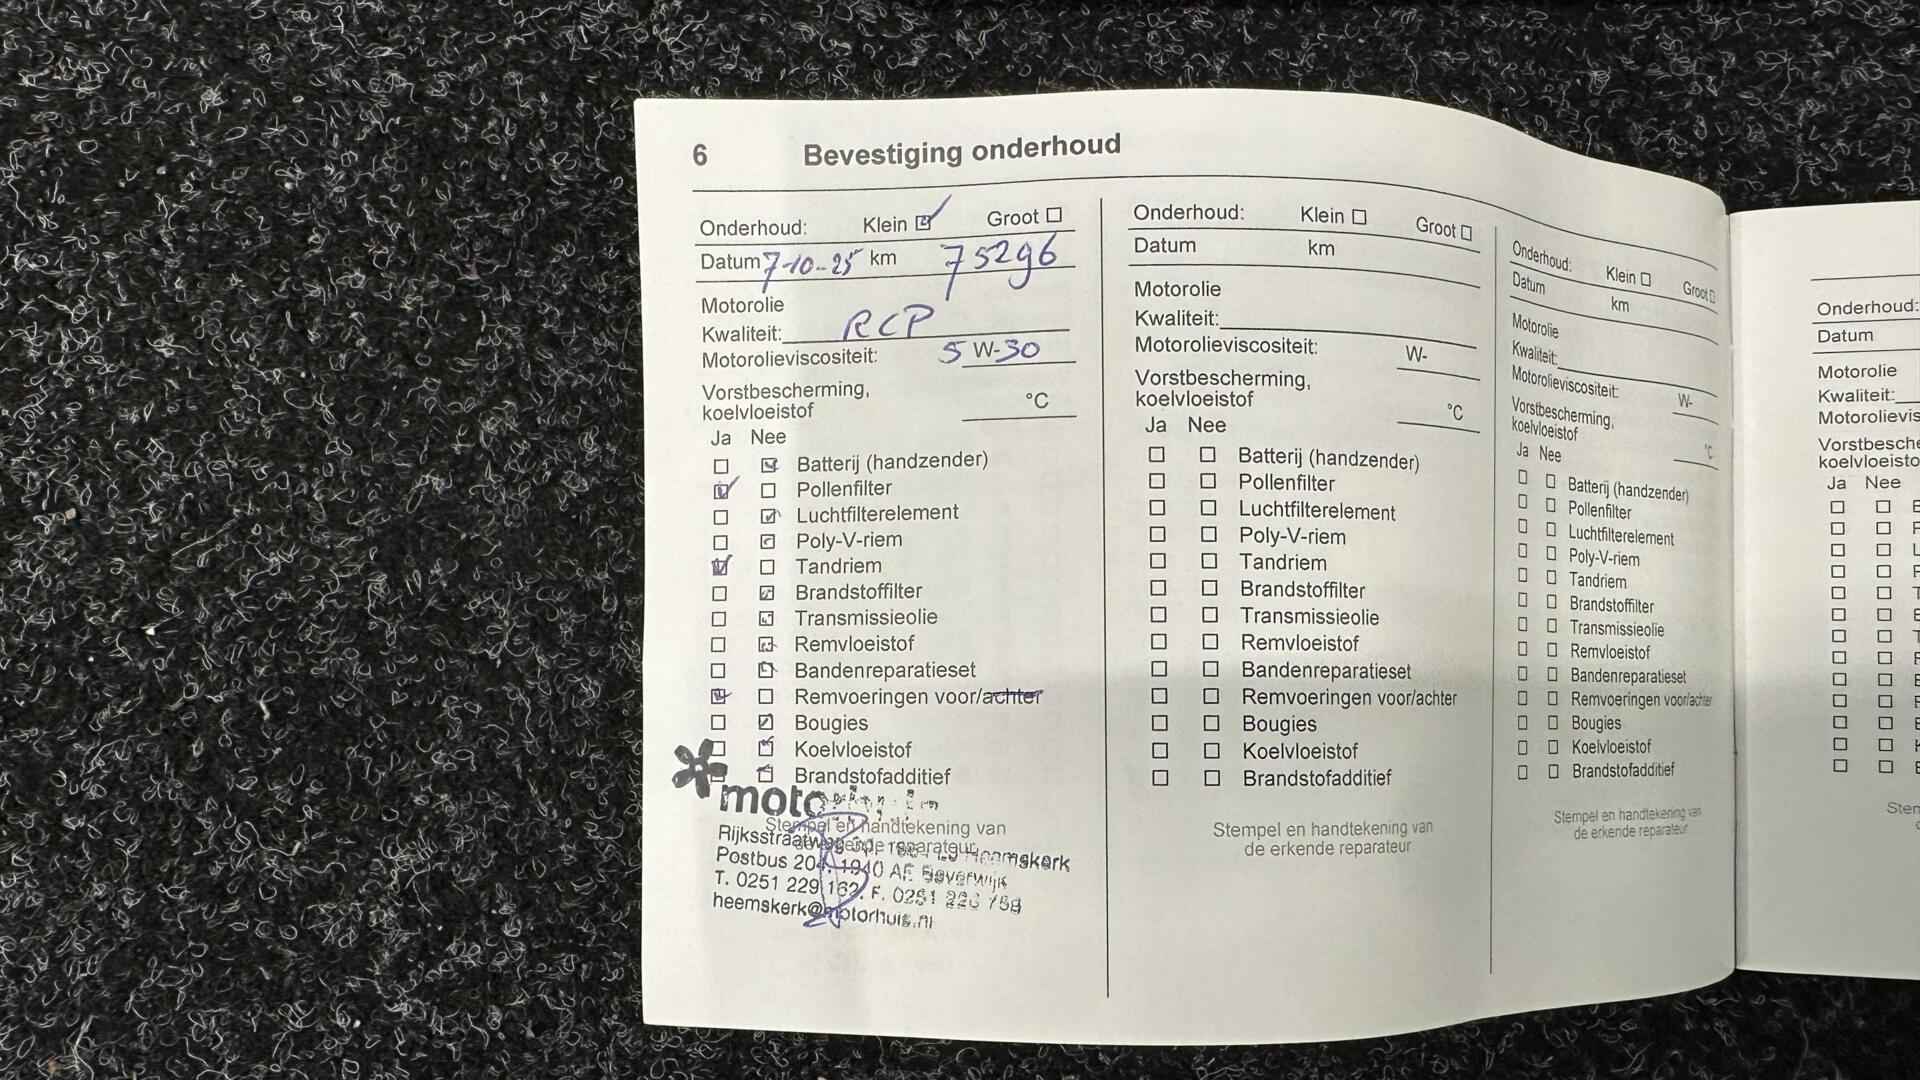 6 Bevestiging onderhoud
Onderhoud: Klein Groot
Datum 7-10-25 km 75296
Motorolie
Kwaliteit: RCP
Motorolieviscositeit: 5 W-30
Vorstbescherming,
koelvloeistof °C
Ja Nee
Batterij (handzender)
Pollenfilter
Luchtfilterelement
Poly-V-riem
Tandriem
Brandstoffilter
Transmissieolie
Remvloeistof
Bandenreparatieset
Remvoeringen voor/achter
Bougies
Koelvloeistof
Brandstofadditief
Stempel en handtekening van
reparateur
Heemskerk
Postbus 204, 1940 AE Beverwijk
T. 0251 229 162. F. 0251
heemskerk@motorhuis.nl
Onderhoud: Klein Groot
Datum km
Motorolie
Kwaliteit:
Motorolieviscositeit: W-
Vorstbescherming,
koelvloeistof °C
Ja Nee
Batterij (handzender)
Pollenfilter
Luchtfilterelement
Poly-V-riem
Tandriem
Brandstoffilter
Transmissieolie
Remvloeistof
Bandenreparatieset
Remvoeringen voor/achter
Bougies
Koelvloeistof
Brandstofadditief
Stempel en handtekening van
de erkende reparateur
Onderhoud: Klein Groot
Datum km
Motorolie
Kwaliteit:
Motorolieviscositeit: W-
Vorstbescherming,
koelvloeistof °C
Ja Nee
Batterij (handzender)
Pollenfilter
Luchtfilterelement
Poly-V-riem
Tandriem
Brandstoffilter
Transmissieolie
Remvloeistof
Bandenreparatieset
Remvoeringen voor/achter
Bougies
Koelvloeistof
Brandstofadditief
Stempel en handtekening van
de erkende reparateur
Onderhoud:
Datum
Motorolie
Kwaliteit:
Motorolievis
Vorstbesche
koelvloeisto
Ja Nee